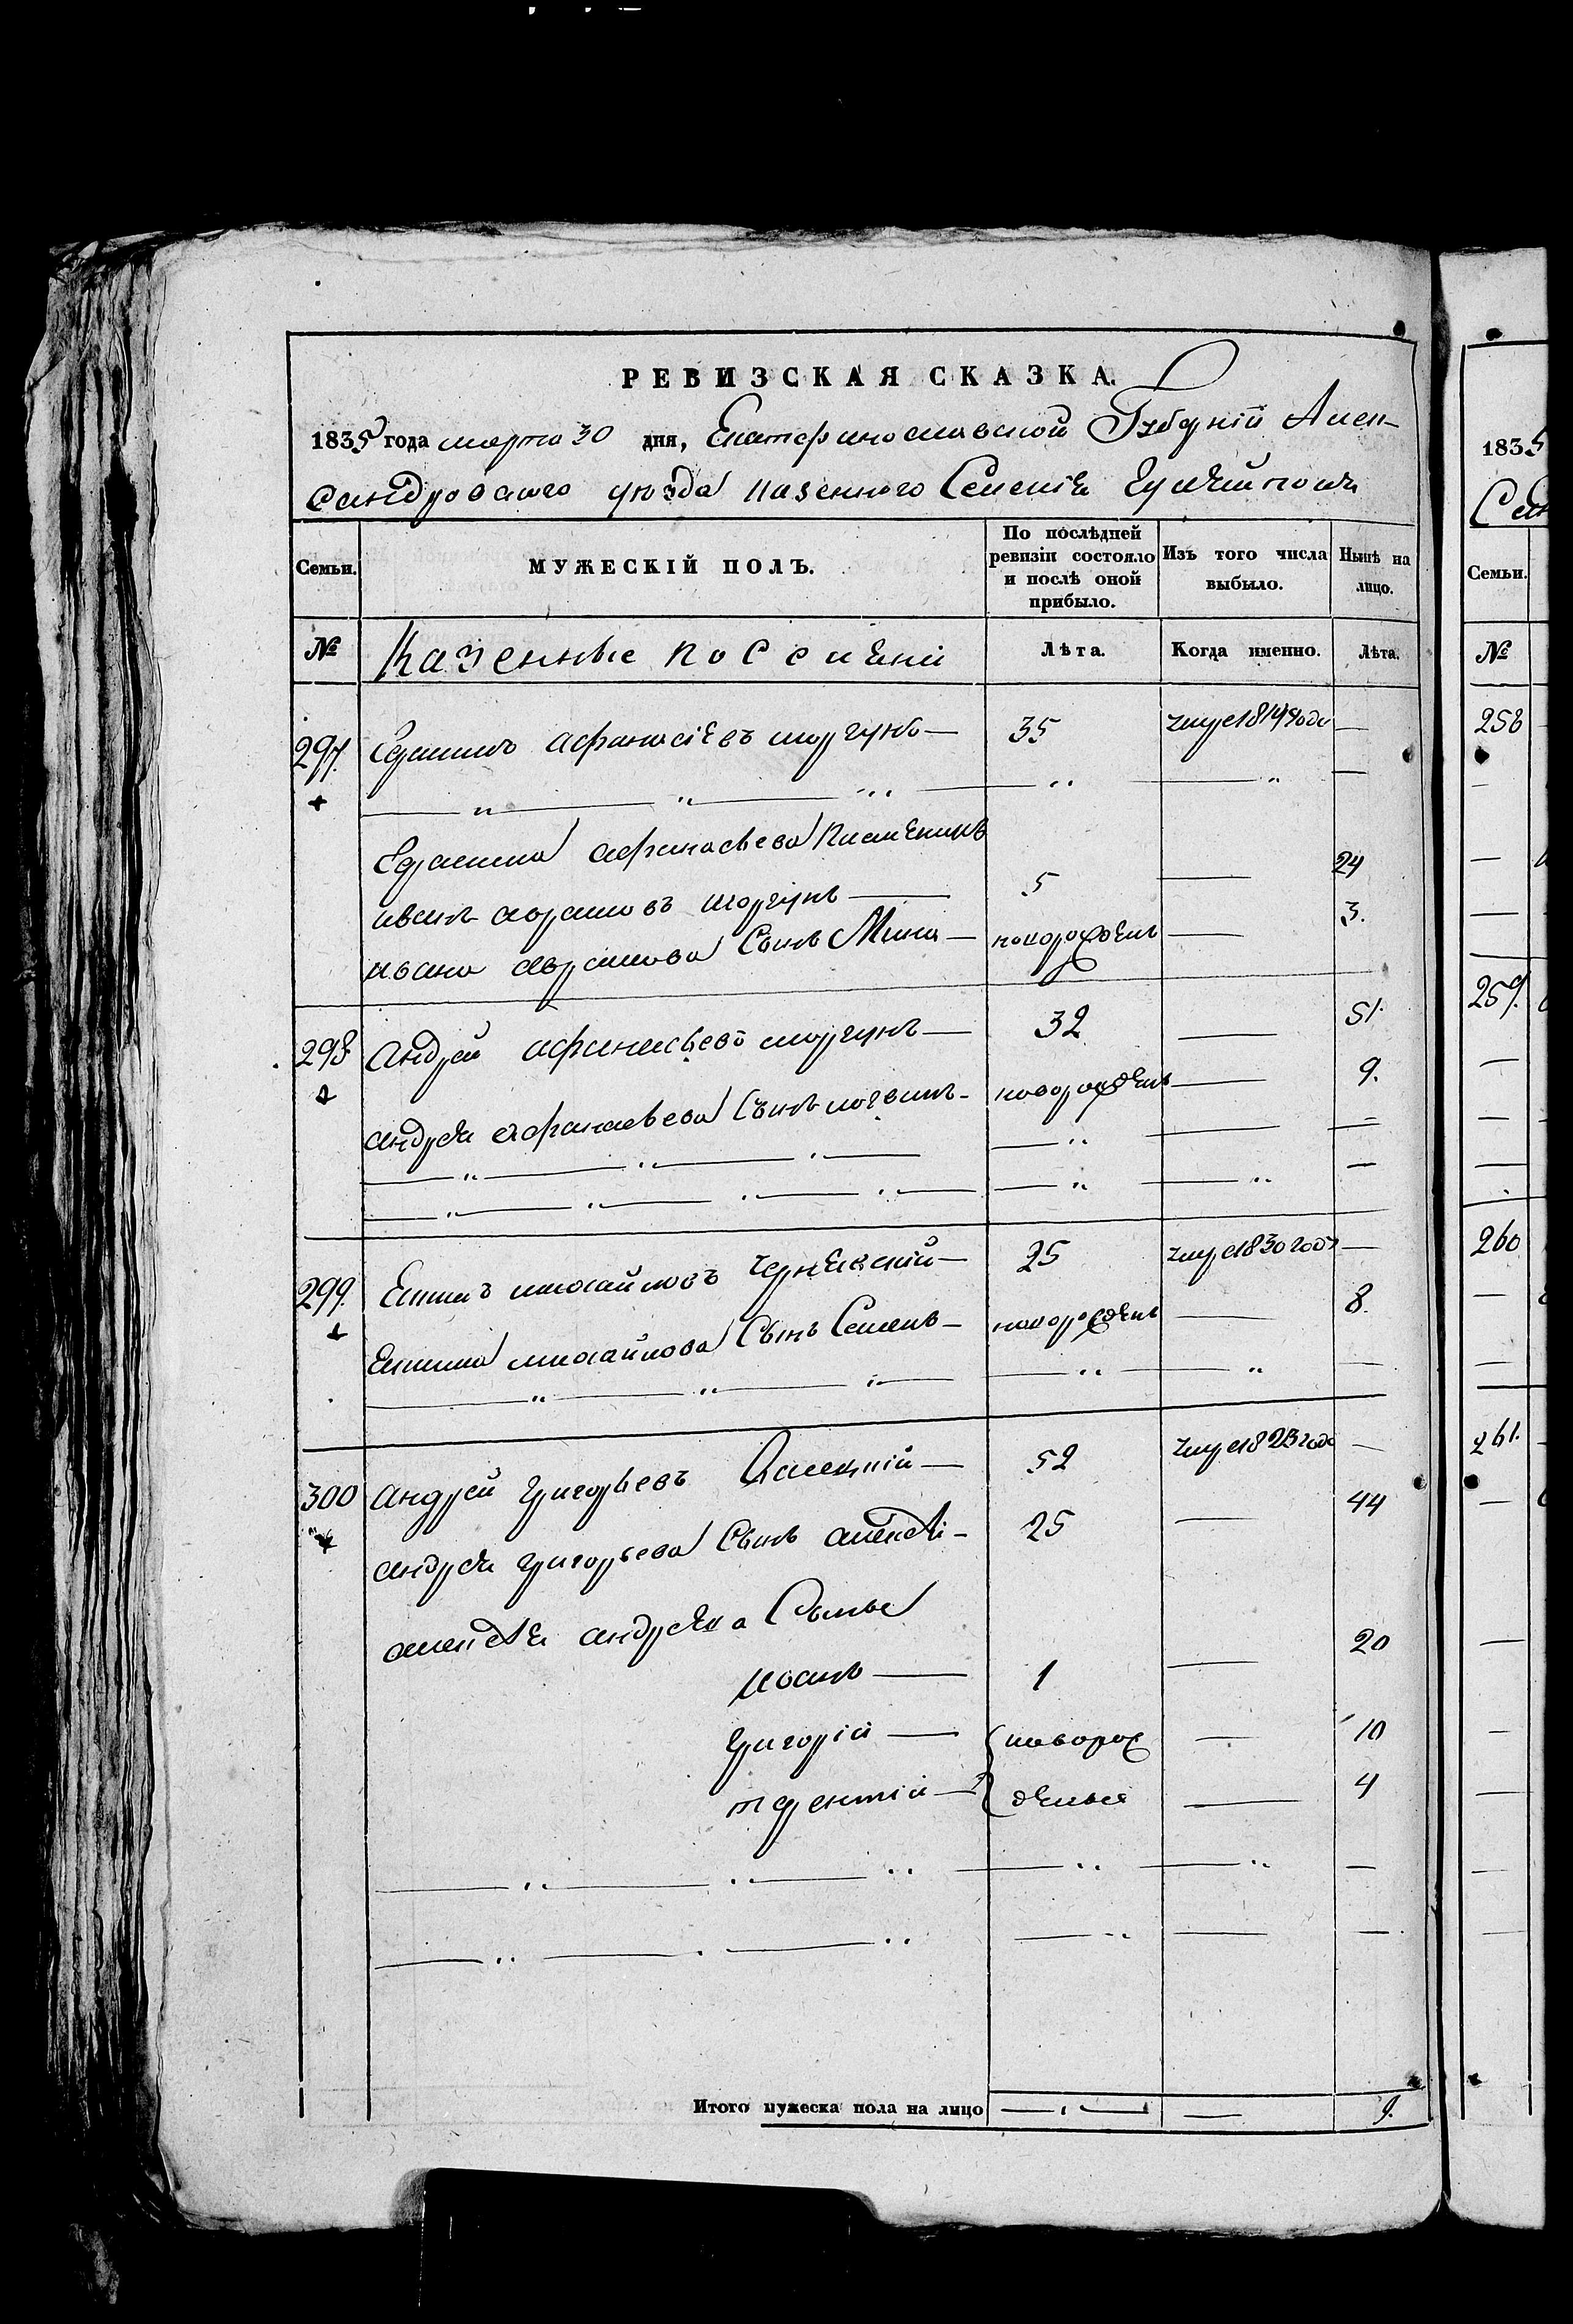 РЕВИЗСКАЯ СКАЗКА.
1835 года марта 30 дня, Екатеринославской Губерніи Алек-
сандровского уѣзда казенного Селенія Гуляйполя
Семьи. МУЖЕСКІЙ ПОЛЪ. По послѣдней ревизіи состояло и послѣ оной прибыло. Изъ того числа выбыло. Нынѣ на лицо.
№ Казенные поселяне Лѣта. Когда именно. Лѣта.
297. афанасіевъ моргунъ — 35 умре 1814 года —
афанасьева племеникъ
иванъ аврамовъ моргунъ — 5 — 24
ивана аврамова Сынъ Мина — новорожденъ — 3.
298 Андрей афанасьевъ моргунъ — 32 — 51.
андрея афанасьева Сынъ логвинъ — новорожденъ — 9.
299. михайловъ — 25 умре 1830 года —
михайлова Сынъ Семенъ — новорожденъ — 8.
300 андрей григорьевъ — 52 умре 1823 года —
андрея григорьева Сынъ алексѣй — 25 — 44
алексѣя андреева Сынье
иванъ — 1 — 20
григорій — новорож — 10
терентій — денные — 4
Итого мужеска пола на лицо — — 9.
1835
Семьи.
№
258
259.
260
261.